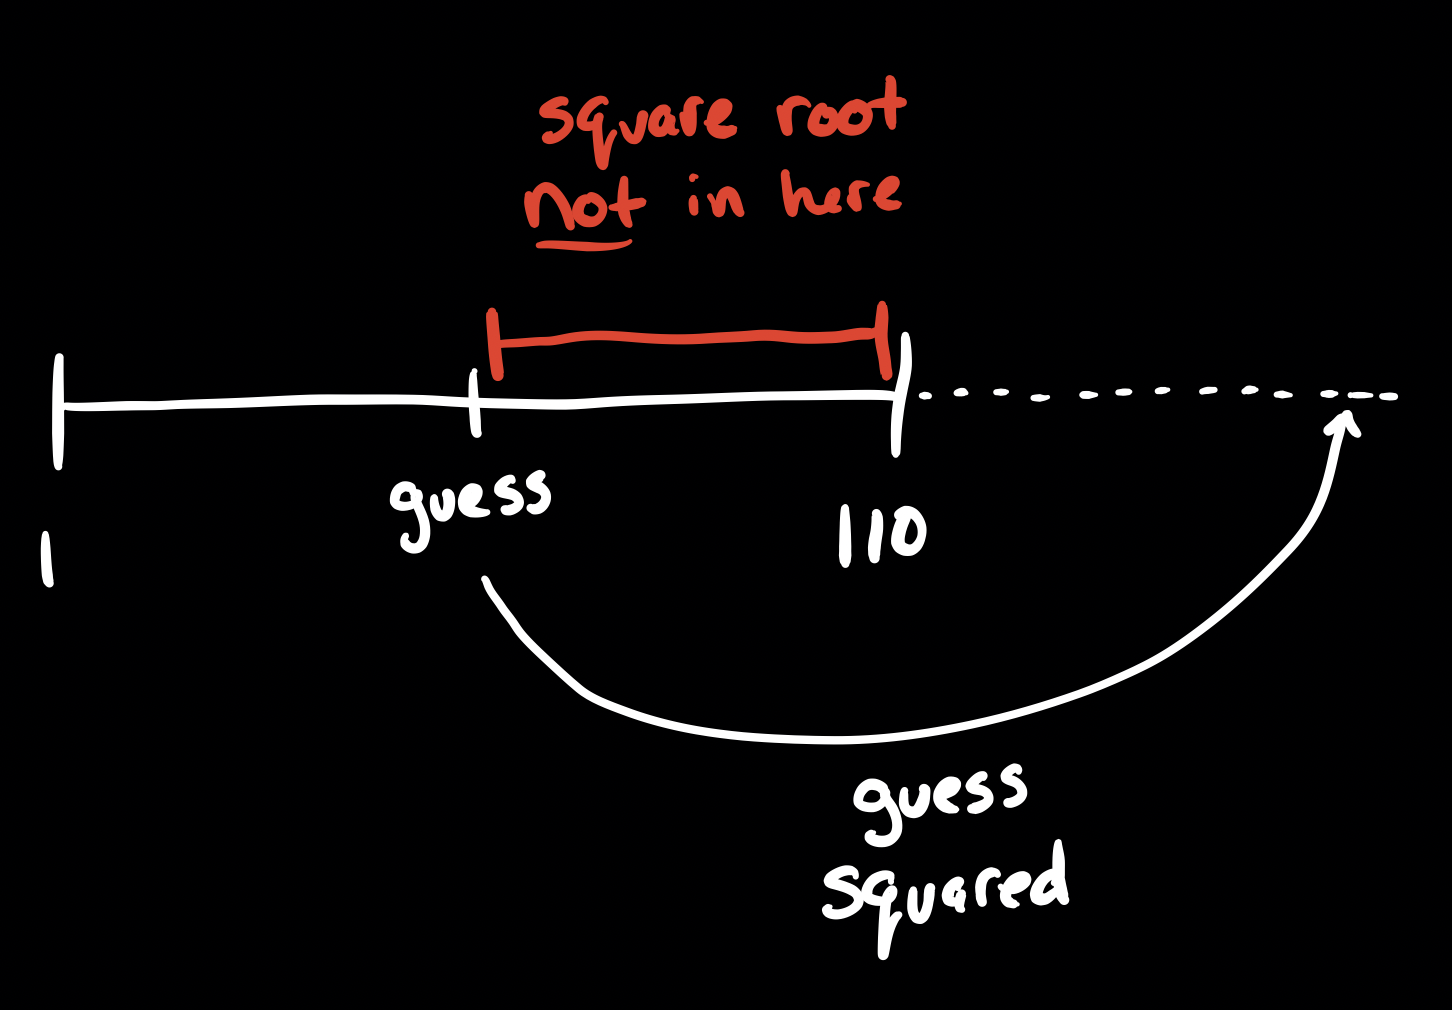 square root
not in here
guess
1
110
guess
squared